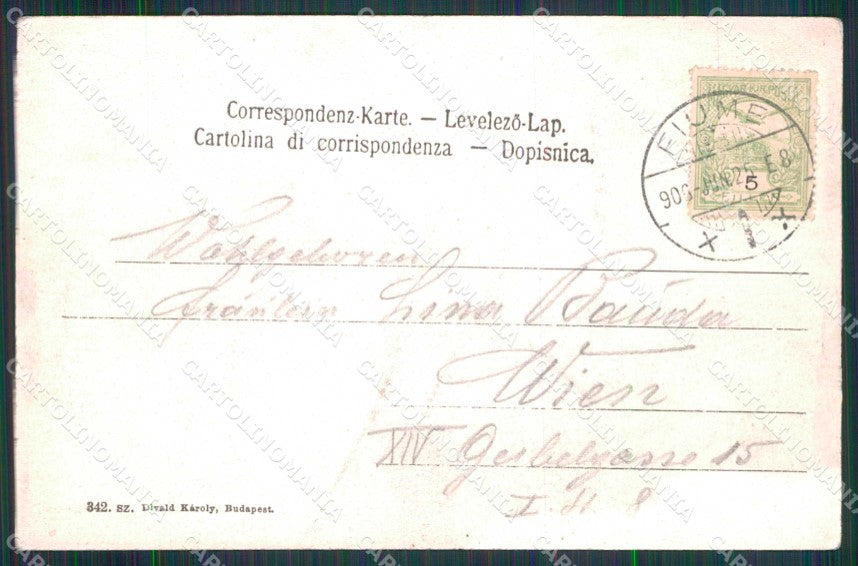 Correspondenz-Karte. — Levelező-Lap.
Cartolina di corrispondenza — Dopisnica.
FIUME
5
Wohlgeboren
Fräulein Lina Bauda
Wien
XIV Geibelgasse 15
I. St 8
342. SZ. Divald Károly, Budapest.
CARTOLINOMANIA